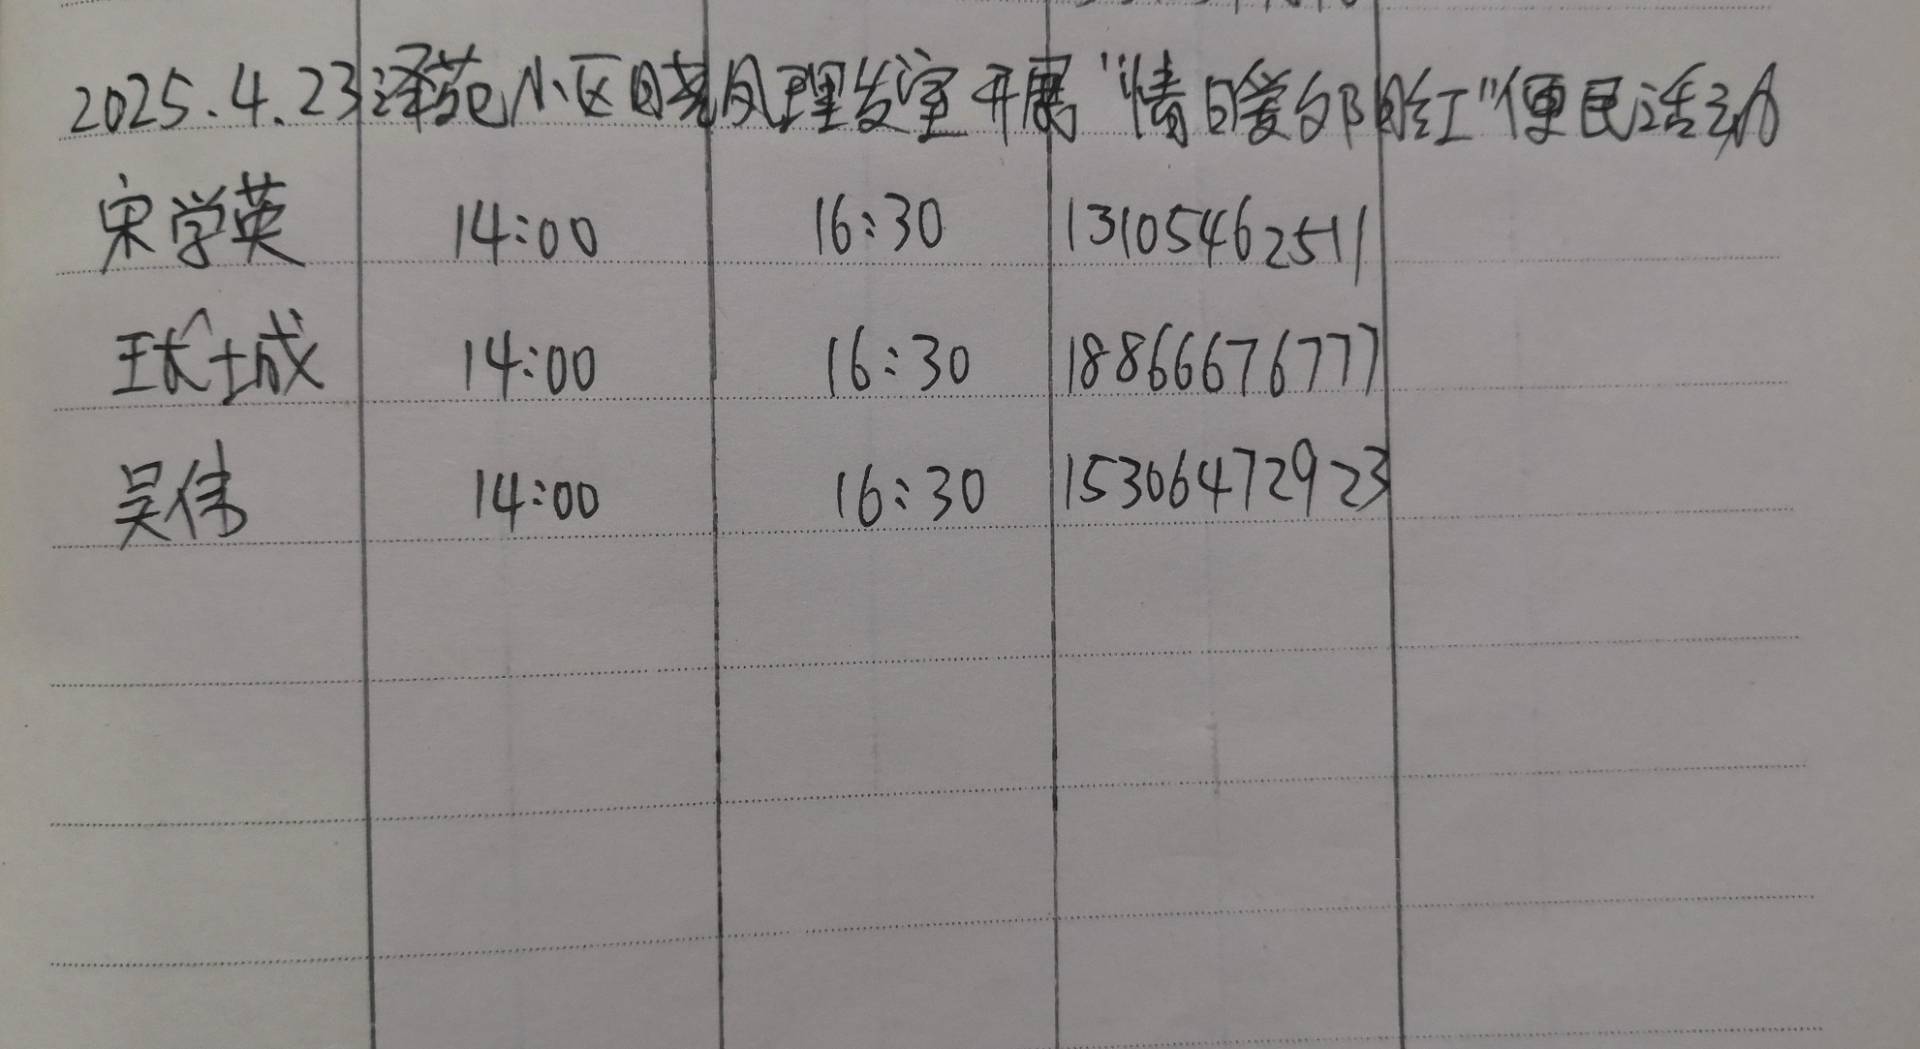 2025.4.23泽苑小区晓凤理发室开展"情暖夕阳红"便民活动
宋学英 14:00 16:30 13105462511
城 14:00 16:30 18866676777
吴伟 14:00 16:30 15306472923